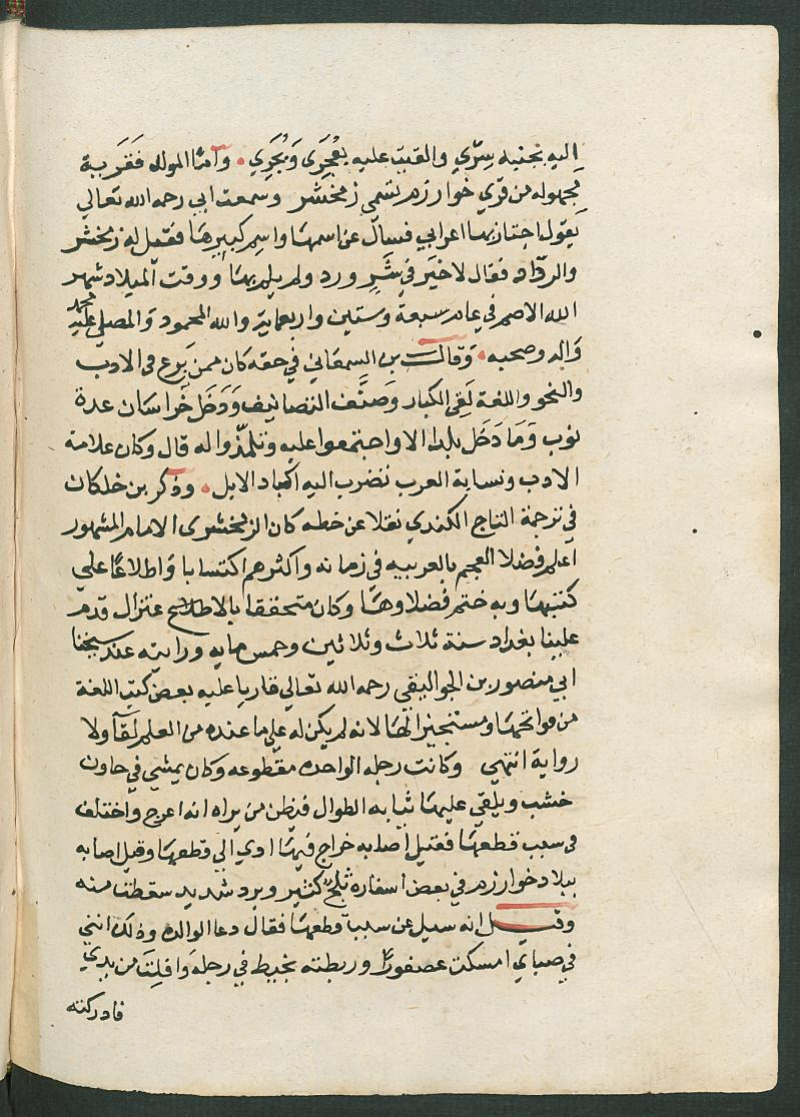 اليه بجنبه سِرّي والقيت عليه بعُجَرَى وَبُجَرِي . وآمّا الموله فَقَرية
مجهوله من قرى خوارزم تسمى زمخشر وسمعت ابي رحمه الله تعالى
يقول اجتاز بها اعرابي فسال عن اسمها واسم كبيرها فقيل له زمخشر
والردّاد فقال لا خير في شَرٍ ورد ولم يلم بها ووقت الميلاد شهر
الله الاصم في عام سبعة وستين واربعماية والله المحمود والمصلى عليه محمد
وَاله وصحبه . وَقال بن السمعاني في حقه كان ممن بَرع في الادب
والنحو واللغة لَقي الكبار وَصنَّف التصانيف وَدَخَل خراسان عدة
نوب وَمَا دَخَل بلدا الا واجتمعوا عليه وتلمذوا له قال وكان علامة
الادب ونسابة العرب تضرب اليه اكباد الابل . وذكر بن خلكان
في ترجمة التاج الكندي نقلا عن خطه كان الزمخشرى الامام المشهور
اعلم فضلا العجم بالعربيه في زمانه واكثرهم اكتسابا وَاطلاعًا على
كتبها وبه ختم فضلاوها وكان متحققا بالاعتزال قدم
علينا بغداد سنة ثلاث وثلاثين وخمس مايه ورايته عند شيخنا
ابي منصور بن الجواليقي رحمه الله تعالى قاريا عليه بعض كتب اللغة
من فواتحها ومستجيزا لها لانه لم يكن له على ما عنده من العلم لقآ ولا
رواية انتهي وكانت رجله الواحده مقطوعه وكان يمشي في جاون
خشب ويلقي عليها ثيابه الطوال فيظن من يراه انه اعرج واختلف
في سبب قطعها فقيل اصابه خراج فيها ادي الي قطعها وقيل اصابه
ببلاد خوارزم في بعض اسفاره ثلج كثير وبرد شديد سقطت منه
وقيل انه سيل عن سبب قطعها فقال دعا الوالده وذلك انني
في صباي امسكت عصفورًا وربطته بخيط في رجله وَافلت من يدي
فادركته